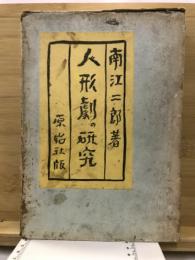 南江二郎著
人形劇の研究
原始社版